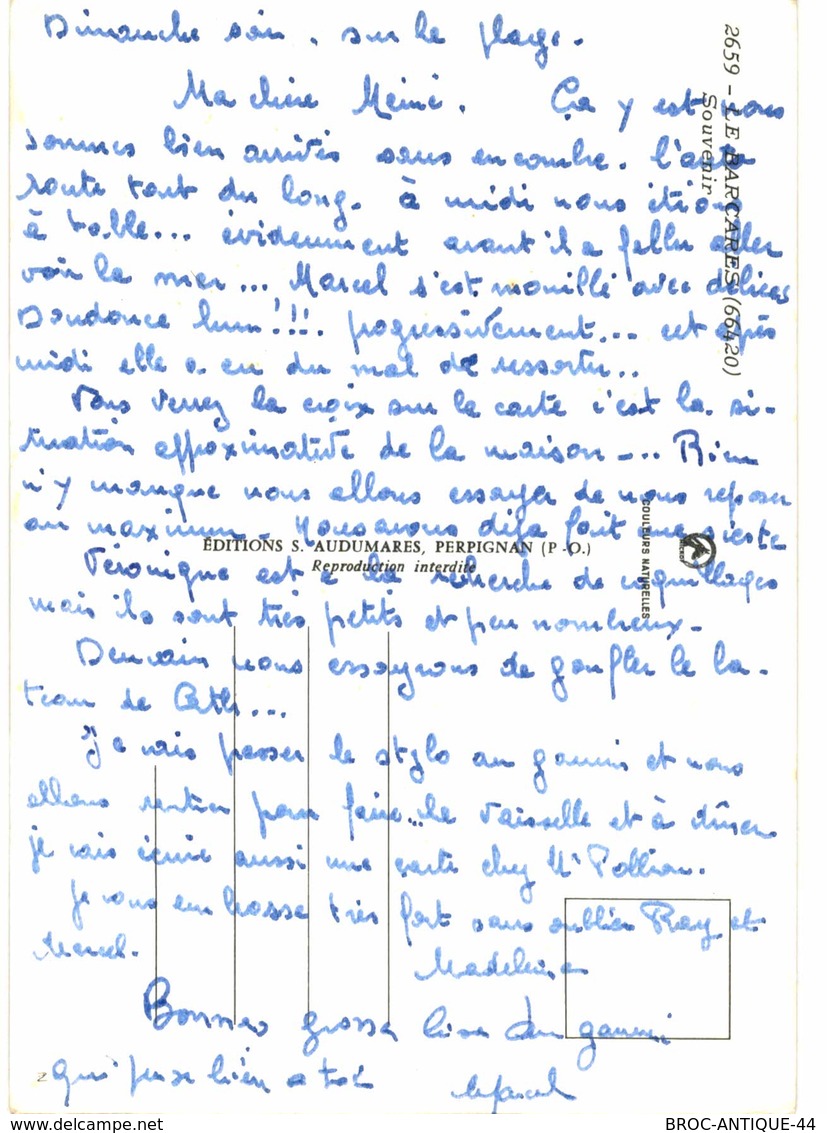 Dimanche soir, sur la plage.
Ma chère Mémé. Ça y est nous
sommes bien arrivés sans encombre. l'auto
route tout du long. à midi nous étions
à table... évidemment avant il a fallu aller
voir la mer... Marcel s'est mouillé avec délices
!!!. progressivement... cet après
midi elle a eu du mal de ressortir..
Vous verrez la croix sur la carte c'est la si-
tuation approximative de la maison-.. Rien
n'y manque nous allons essayer de nous reposer
au maximum. Nous avons déjà fait une sieste
Véronique est à la recherche de coquillages
mais ils sont très petits et peu nombreux.
Demain nous essayerons de gonfler le ba-
teau de Cathi...
Je vais passer le stylo au gamin et nous
allons rentrer pour faire... la vaisselle et à dîner
je vais écrire aussi une carte chez Me
Je vous embrasse très fort sans oublier Ray et
Marcel.
Madeleine
Bonnes grosse bise du gamin
qui pense bien a toi
Marcel
2659 - LE BARCARES (66420)
Souvenir
ÉDITIONS S. AUDUMARES, PERPIGNAN (P.-O.)
Reproduction interdite
COULEURS NATURELLES
Z
BROC-ANTIQUE-44